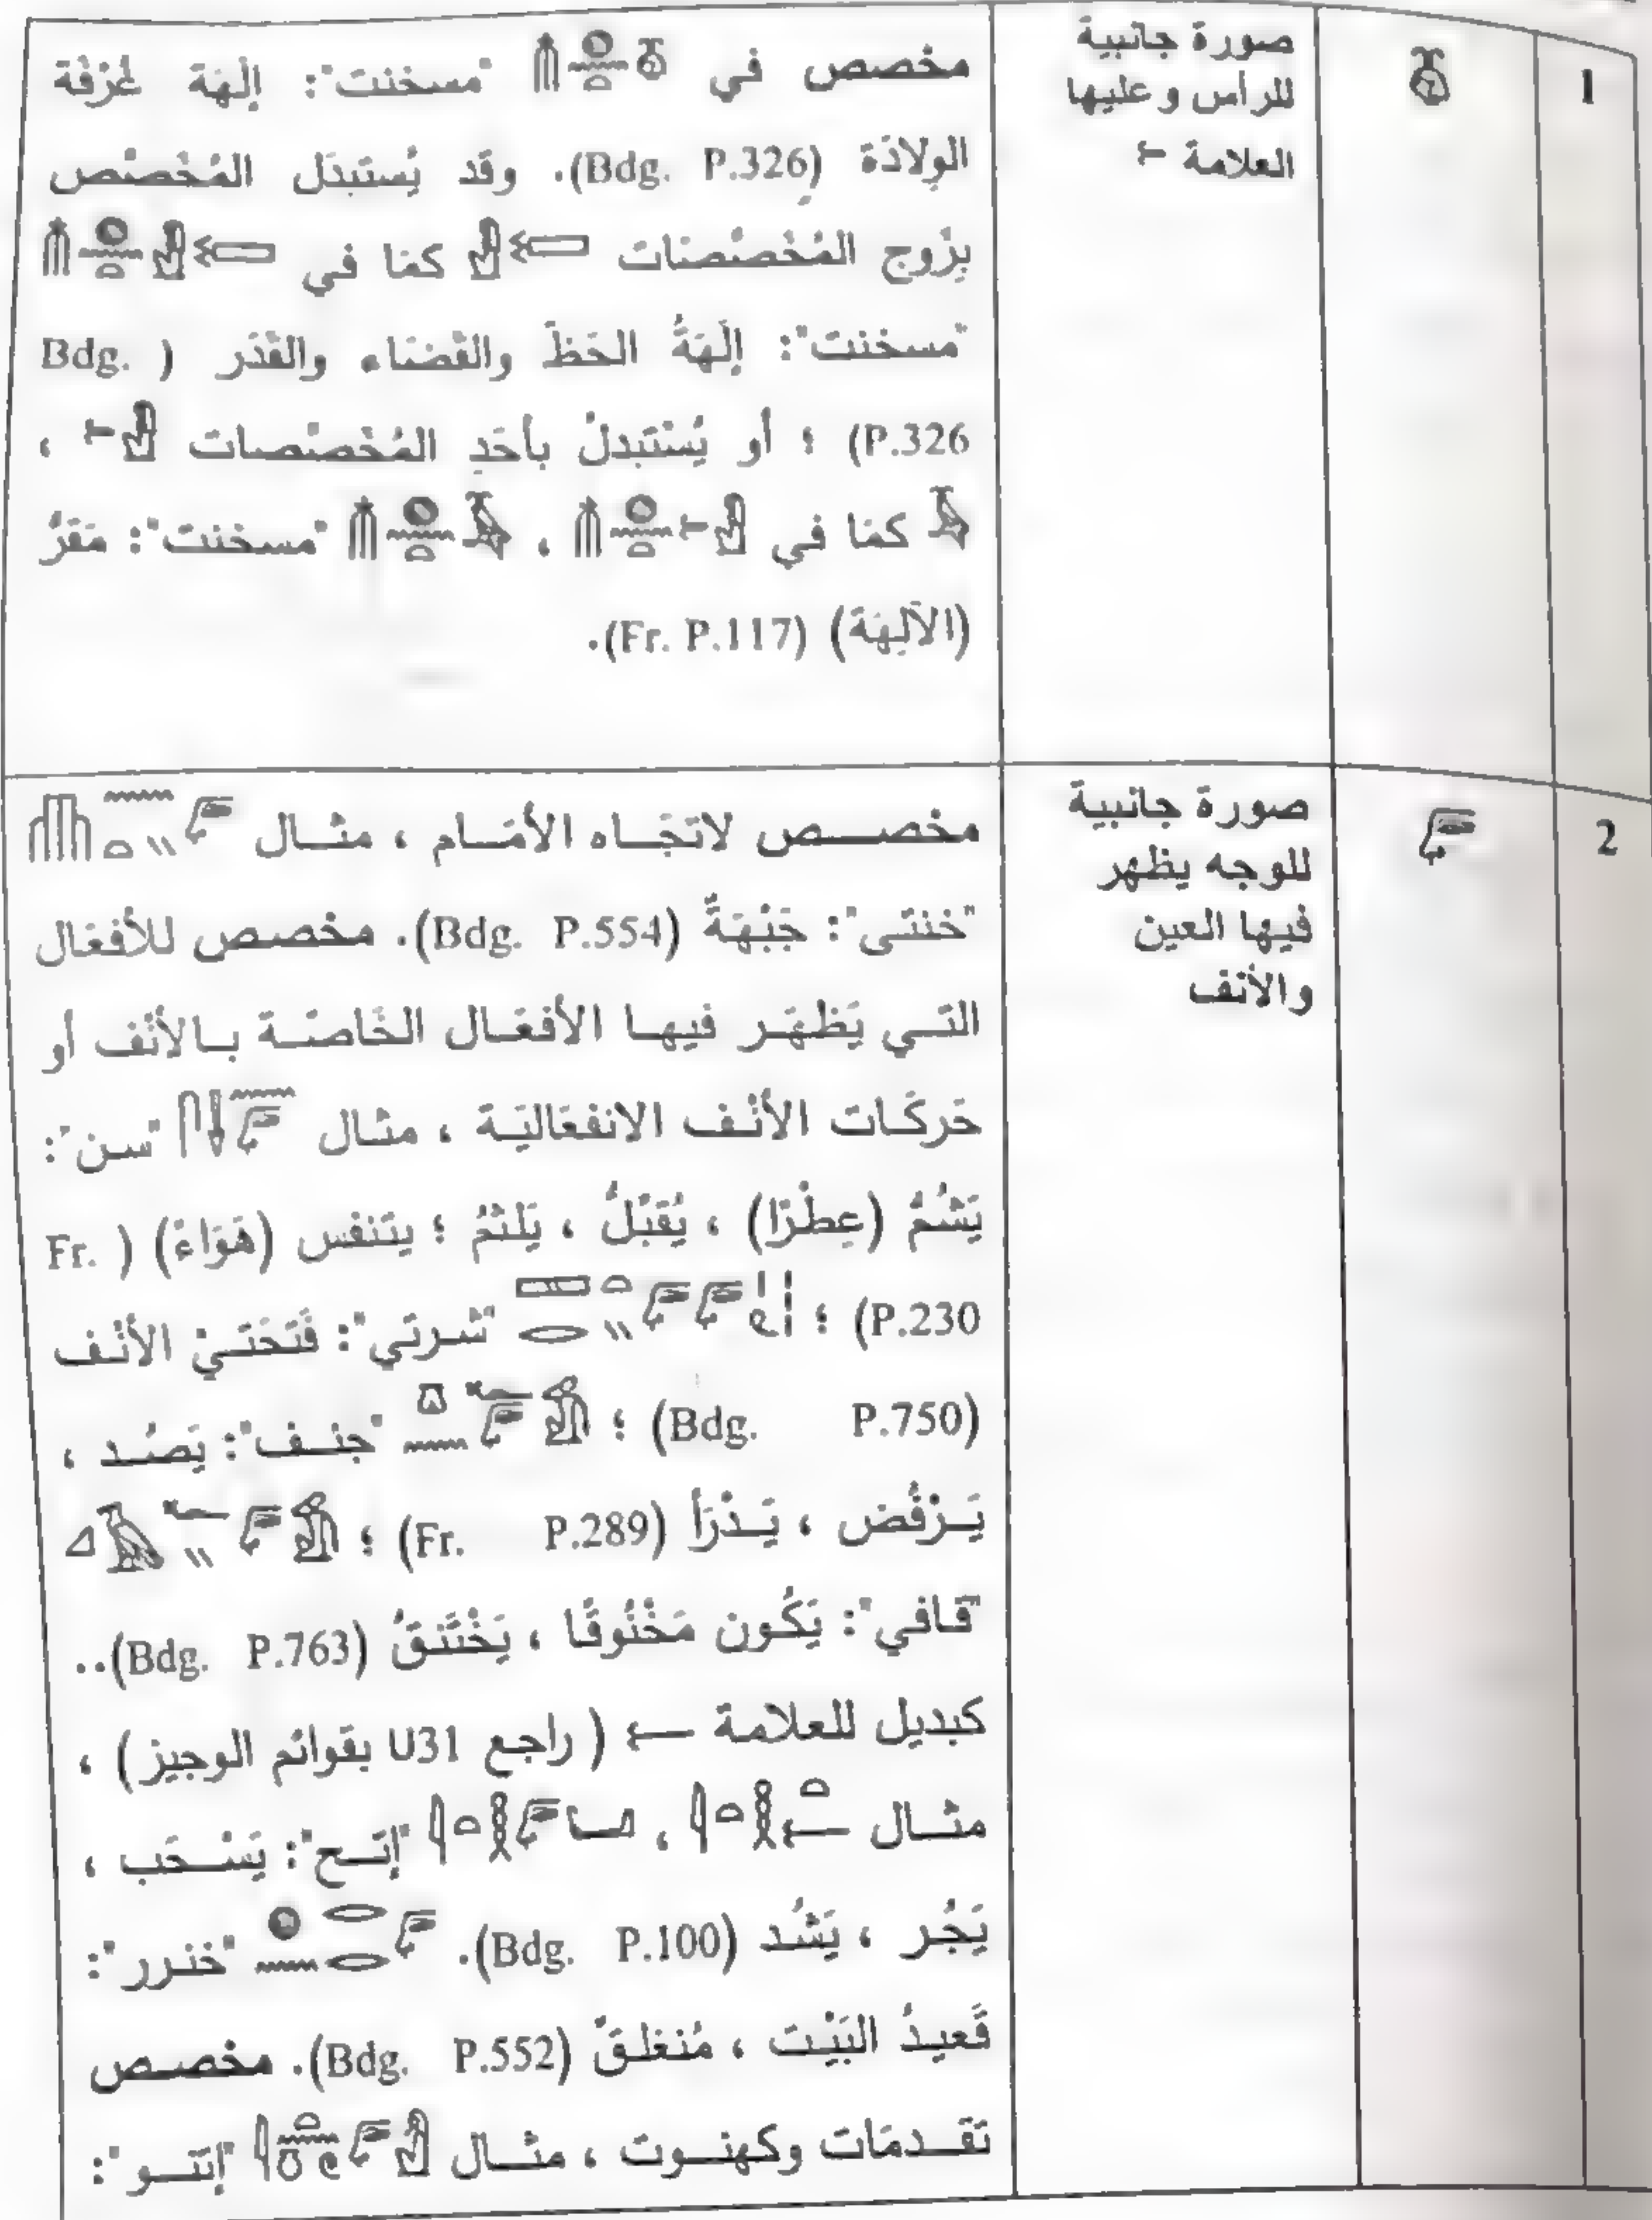 1
صورة جانبية
للرأس وعليها
العلامة
مخصص في "مسخنت": إلَهَة غُرْفَة
الوِلادَة (Bdg. P.326). وقد يُستَبدَل المُخَصَّص
بِزَوج المُخَصَّصَات كمَا في
"مسخنت": إلَهَةُ الحَظّ والقَضَاء والقَدَر ( Bdg.
P.326) ؛ أو يُسْتَبدلْ بأحَدِ المُخَصَّصات ،
كمَا في ، "مسخنت": مَقَرُّ
(الآلِهَة) (Fr. P.117).
2
صورة جانبية
للوجه يظهر
فيها العين
والأنف
مخصص لاتجَاه الأمَام ، مثال
"خنتى": جَبْهَةٌ (Bdg. P.554). مخصص للأفعَال
التي يَظهَر فيها الأفعَال الخَاصَّة بالأنْف أو
حَركَات الأنْف الانفعَاليَة ، مثال "سن":
يَشُمُّ (عِطْرًا) ، يُقَبّلُ ، يَلثمُ ؛ يتنفس (هَوَاءً) ( Fr.
P.230) ؛ "شرتي": فَتحَتيْ الأنْف
(Bdg. P.750) ؛ "جنف": يَصُد ،
يَرْفُض ، يَدْرَأ (Fr. P.289) ؛
"قافي": يَكُون مَخْنُوقًا ، يَخْتَنقُ (Bdg. P.763)..
كبديل للعلامة ( راجع U31 بقوائم الوجيز) ،
مثال ، "إتح": يَسْحَب ،
يَجُر ، يَشُد (Bdg. P.100). "خنرر":
قَعيدُ البَيْت ، مُنغلقٌ (Bdg. P.552). مخصص
تقدمَات وكهنوت ، مثال "إتنو":